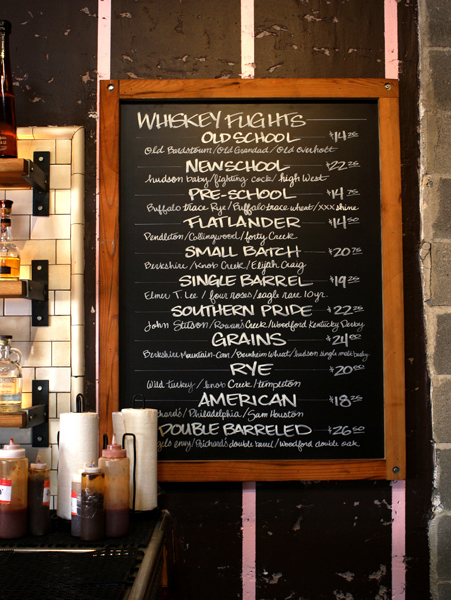 WHISKEY FLIGHTS
OLD SCHOOL $14.25
Old Bardstown/Old Grandad/Old Overholt
NEW SCHOOL $22.25
hudson baby/fighting cock/high West
PRE-SCHOOL $14.75
Buffalo trace Rye/Buffalo trace wheat/XXX shine
FLATLANDER $14.50
Pendleton/Collingwood/forty Creek
SMALL BATCH $20.75
Berkshire/Knob Creek/Elijah Craig
SINGLE BARREL $19.25
Elmer T. Lee / four roses/eagle rare 10yr.
SOUTHERN PRIDE $22.25
John Stetson/Rowan's Creek/Woodford Kentucky Derby
GRAINS $24.00
Berkshire Mountain-Corn/Bernheim Wheat/hudson single malt baby
RYE $20.00
Wild turkey/Knob Creek/templeton
AMERICAN $18.25
Philadelphia/Sam Houston
DOUBLE BARRELED $26.50
envy/Prichard's double barrel/Woodford double oak